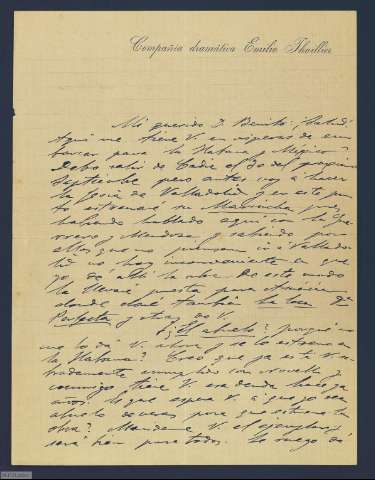 Compañia dramática Emilio Thuillier
Mi querido D. Benito: ¡Salud!
Aquí me tiene V. en vísperas de em
barcar para la Habana y Méjico.
Debo salir de Cádiz el 30 del próximo
Septiembre pero antes voy a hacer
la feria de Valladolid y en este pun
to estrenaré su Mariucha, pues
habiendo hablado aquí con la Gue
rrero y Mendoza y sabiendo por
ellos que no piensan ir a Vallado
lid no hay inconveniente en que
yo dé allí la obra. De este modo
la llevaré puesta para América
donde daré también La loca, Dª
Perfecta y otras de V.
¿Y El abuelo? ¿porqué no
me lo dá V. ahora y se lo estreno en
la Habana? Creo que ya está V. so
bradamente cumplido con Novelli y
conmigo tiene V. esa deuda hace ya
años. ¿O que espera V. a que yo sea
abuelo de veras para que estrene la
obra? Mándeme V. el ejemplar y
será bien para todos. Le ruego dé